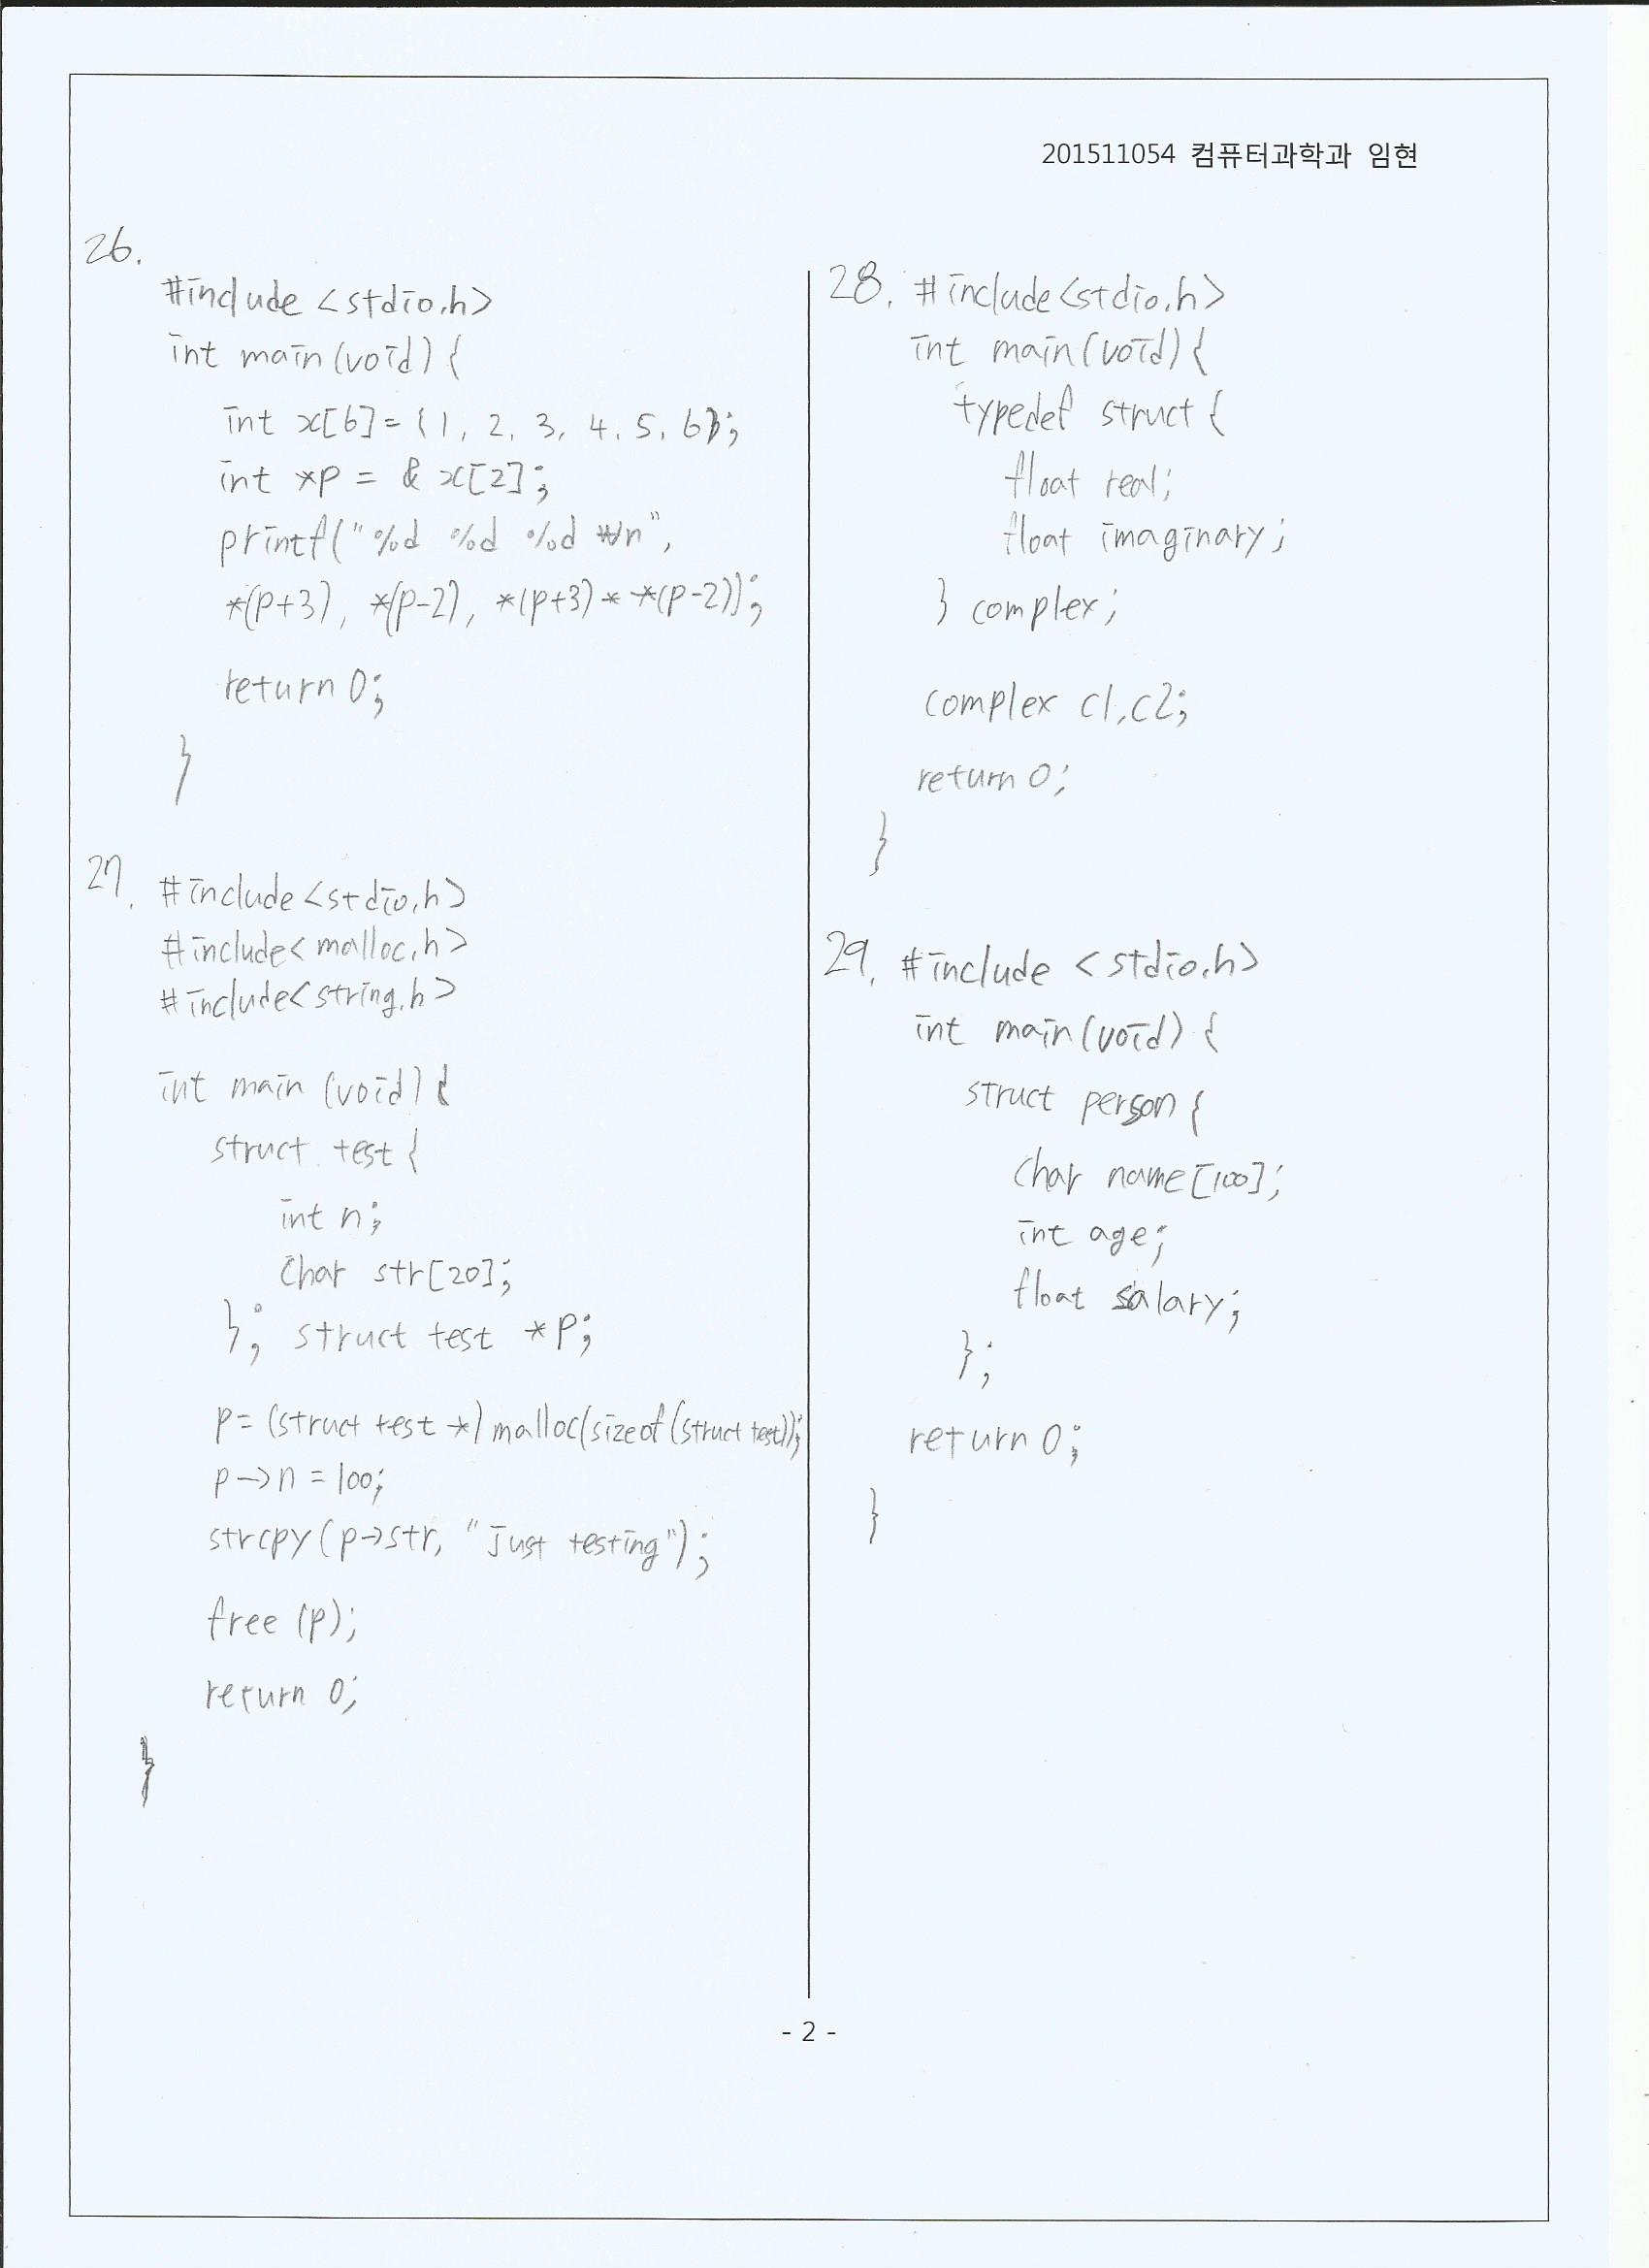 201511054 컴퓨터과학과 임현
26.
#include <stdio.h>
int main(void) {
int x[6]={1, 2, 3, 4, 5, 6};
int *p = & x[2];
printf("%d %d %d ₩n",
*(p+3), *(p-2), *(p+3)* *(p-2));
return 0;
}
27. #include<stdio.h>
#include<malloc.h>
#include<string.h>
int main (void) {
struct test {
int n;
char str[20];
}; struct test *p;
p= (struct test *) malloc(sizeof(struct test));
p->n = 100;
strcpy(p->str, "just testing");
free (p);
return 0;
}
28. #include<stdio.h>
int main(void) {
typedef struct {
float real;
float imaginary;
} complex;
complex c1,c2;
return 0;
}
29. #include <stdio.h>
int main(void) {
struct person {
char name[100];
int age;
float salary;
};
return 0;
}
- 2 -